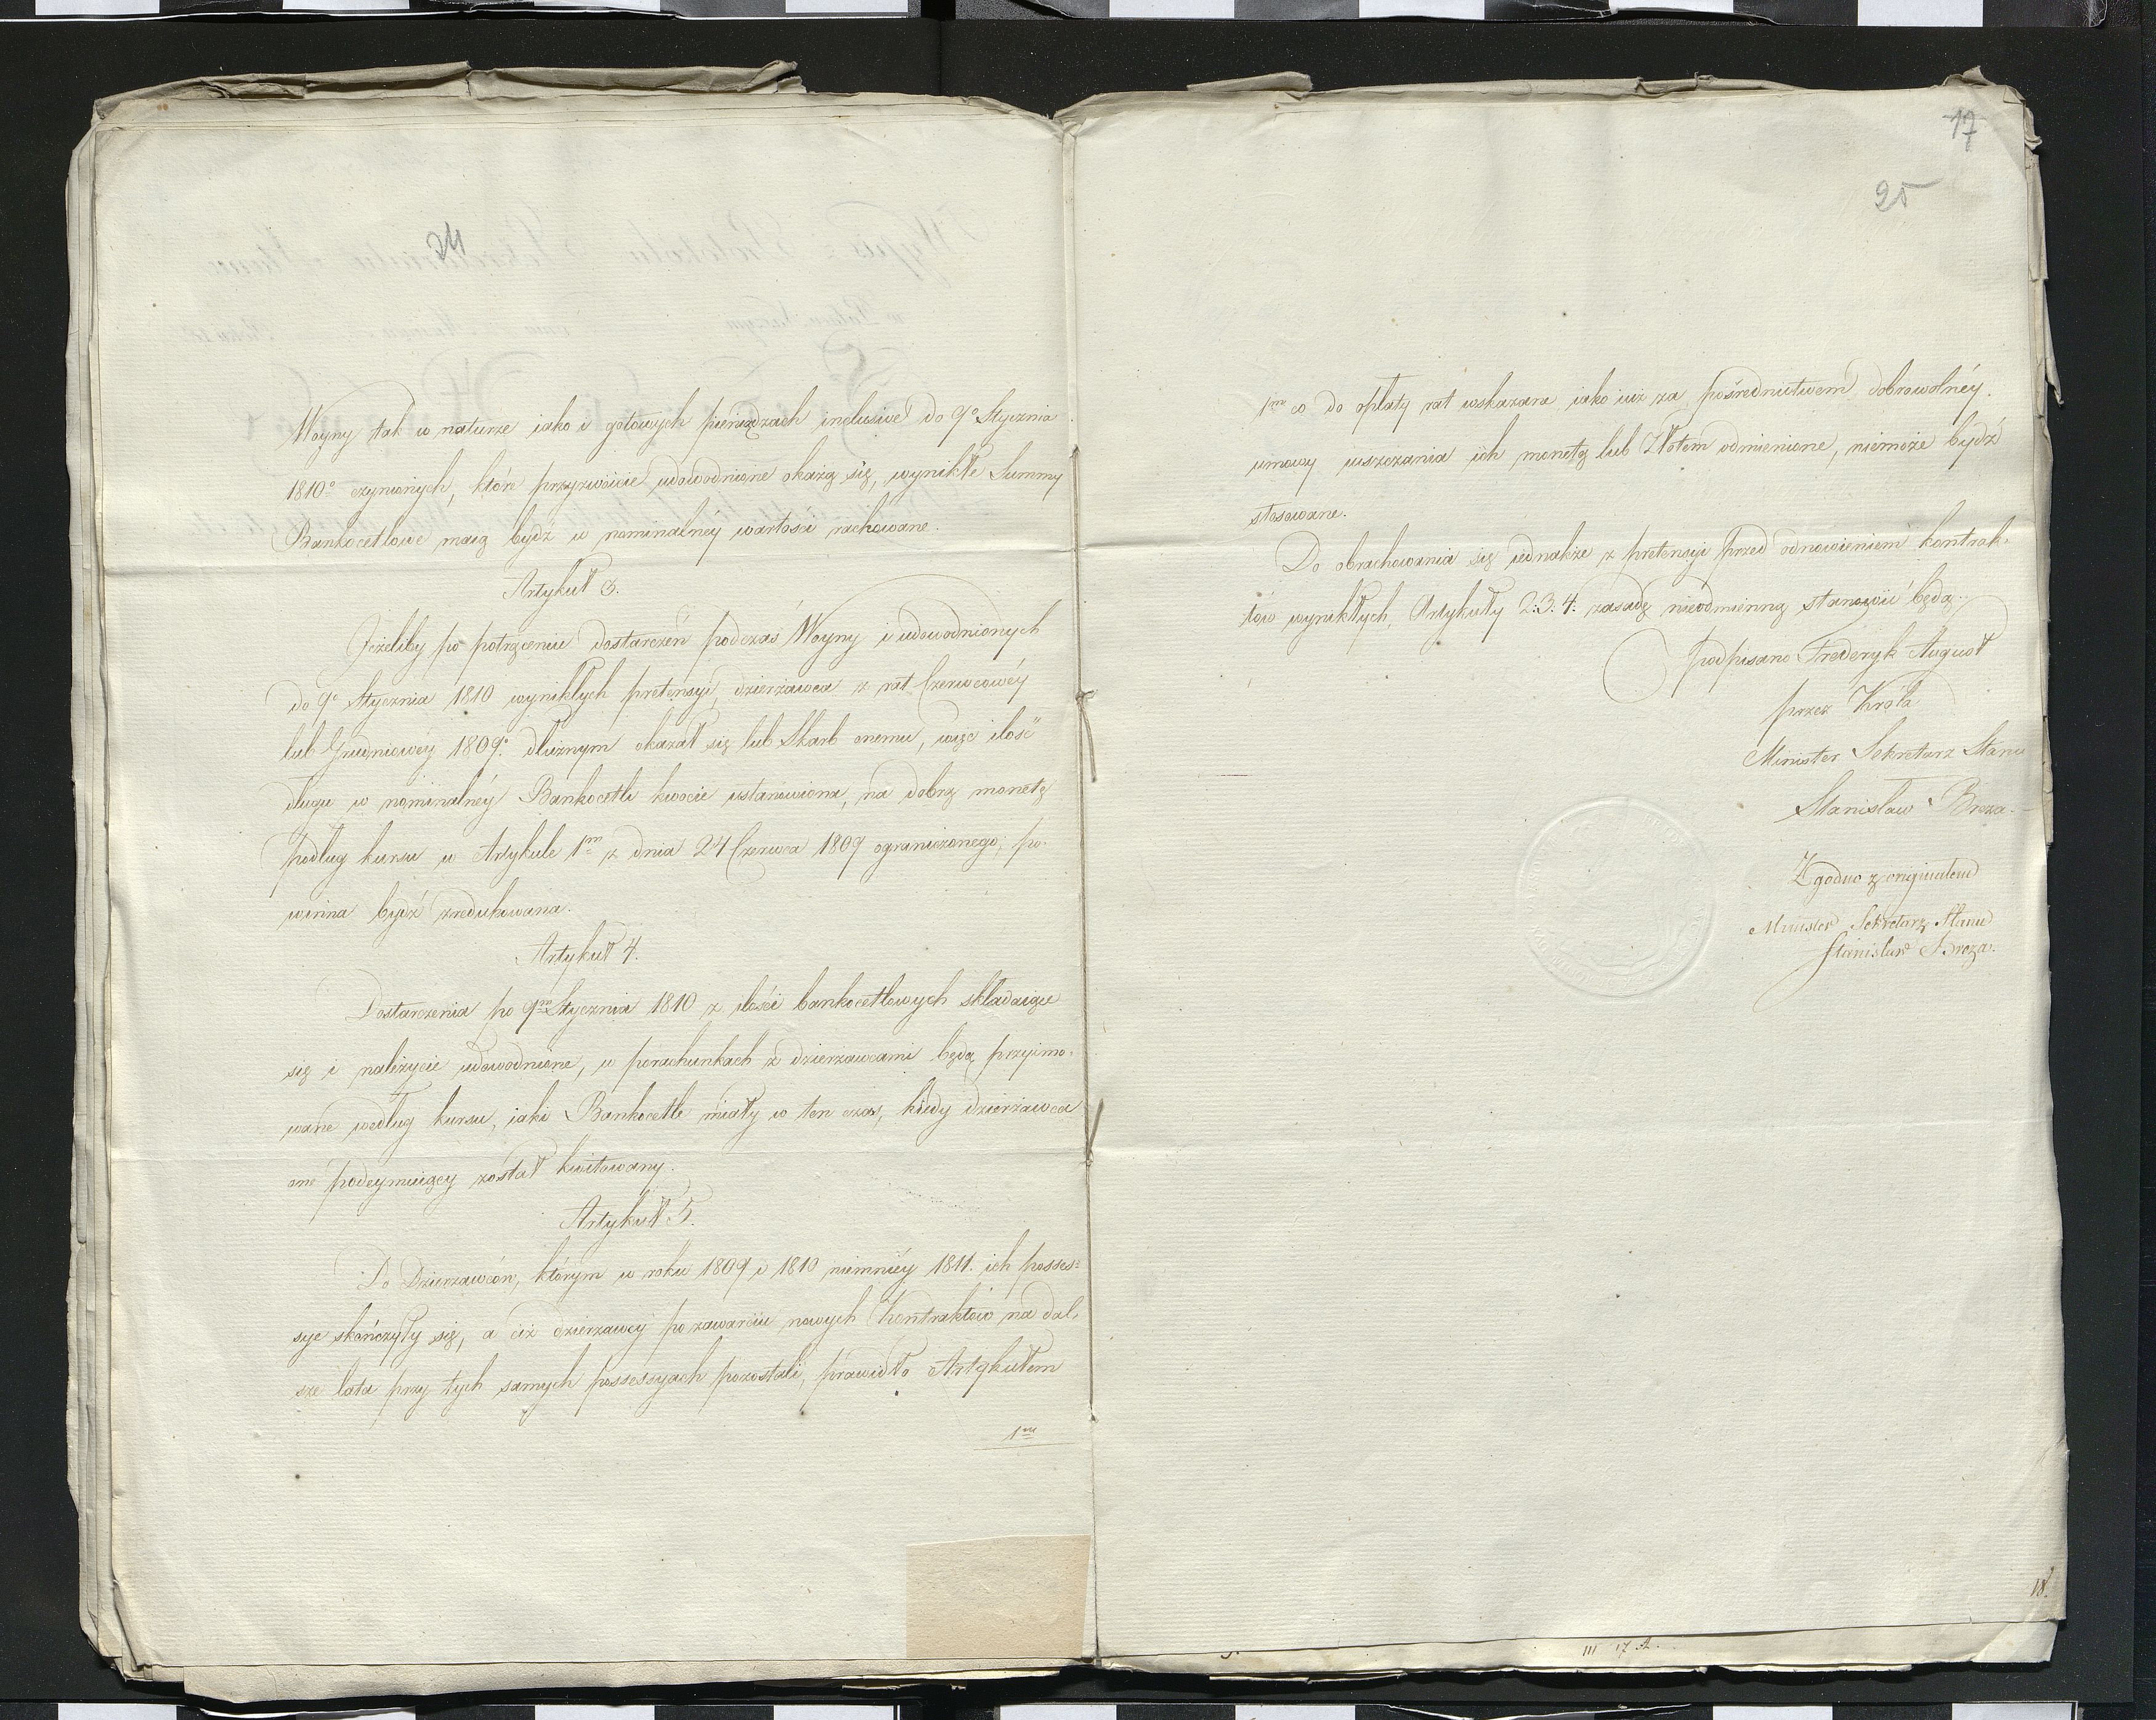 24
Woyny tak w naturze iako i gotowych pieniądzach inclusive do 9º Stycznia
1810º czynionych, które przyzwoicie udowodnione okażą się, wynikłe Summy
Bankocetlowe maią bydź w nominalnéy wartości rachowane.
Artykuł 3.
Jeżeliby po potrąceniu dostarczeń podczas Woyny i udowodnionych
do 9º Stycznia 1810 wynikłych pretensyi, dzierżawca z rat Czerwcowéy
lub Grudniowéy 1809º dłużnym okazał się lub Skarb onemu, więc ilość
długu w nominalnéy Bankocetli kwocie ustanowiona, na dobrą monetę
podług kursu w Artykule 1m z dnia 24 Czerwca 1809 ograniczonego, po-
winna bydź zredukowana.
Artykuł 4.
Dostarczenia po 9m Stycznia 1810 z ilości bankocetlowych składaiące
się i należycie udowodnione, w porachunkach z dzierżawcami będą przyimo-
wane według kursu, iaki Bankocetle miały w ten czas, kiedy dzierżawca
one podeymuiący został kwitowany.
Artykuł 5.
Do Dzierżawców, którym w roku 1809 i 1810 niemniéy 1811. ich posses-
sye skończyły się, a ciż dzierżawcy po zawarciu nowych Kontraktów na dal-
sze lata przy tych samych possessyach pozostali, prawidło Artykułem
1m
17
25
1m co do opłaty rat wskazane, iako iuż za pośrednictwem dobrowolnéy
umowy uiszczania ich monetą lub Złotem odmienione, niemoże bydź
stosowane.
Do obrachowania się iednakże z pretensyi przed odnowieniem kontrak-
tów wynikłych, Artykuły 2. 3. 4. zasadę nieodmienną stanowić będą.
podpisano Frederyk August
przez Króla
Minister Sekretarz Stanu
Stanisław Breza.
Zgodno z originałem
Minister Sekretarz Stanu
Stanisław Breza.
18.
III 17 A.